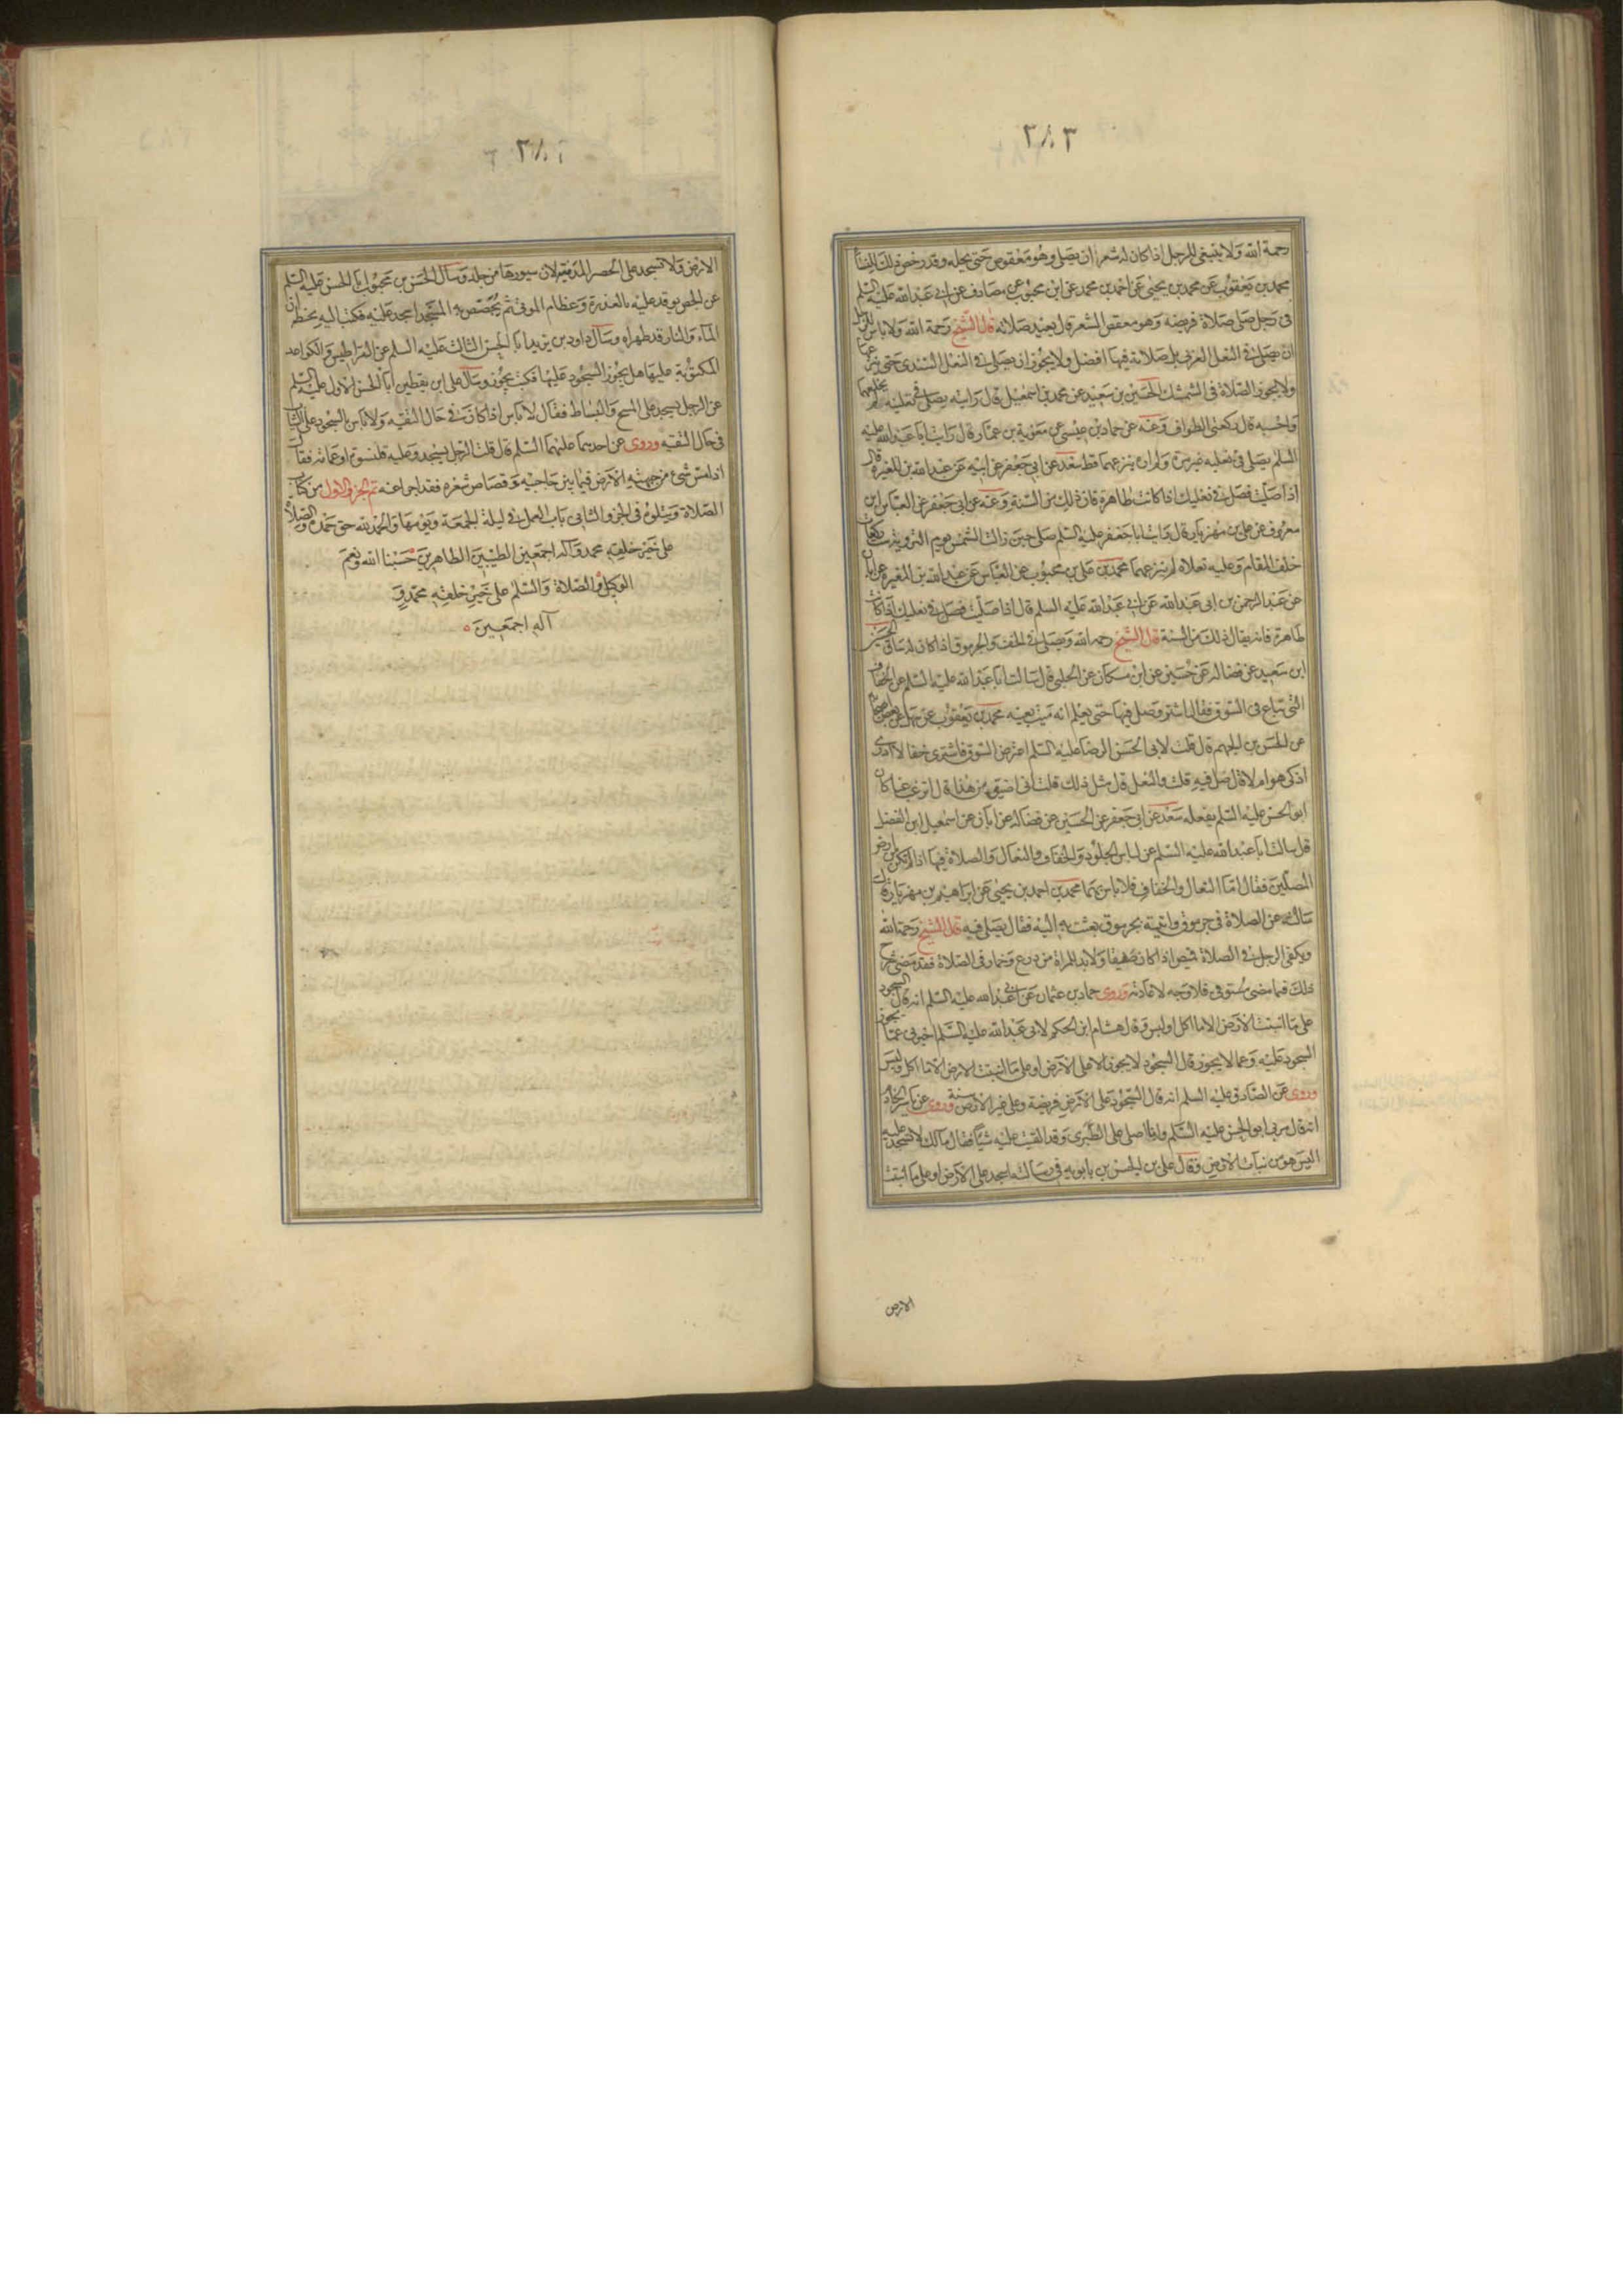 ٣٨٣
رحمة الله ولا ينبغى للرجل اذا كان له شعر ان يصلى وهو معقوص حتى يحله وقد رخص ذلك للنساء
محمد بن يعقوب عن محمد بن يحيى عن احمد بن محمد عن ابن محبوب عن مصادف عن ابى عبد الله عليه السلم
فى رجل صلى صلاة فريضه وهو معقص الشعر قال يعيد صلاته قال الشيخ رحمة الله ولا باس للرجل
ان يصلى فى النعل العربى بل صلاته فيها افضل ولا يجوز ان يصلى فى النعل السندى حتى ينزعها
ولا يجوز الصلاة فى الشمشك الحسين بن سعيد عن محمد بن اسمعيل قال رايته يصلى فى نعليه لم يخلعهما
واحسبه قال ركعتى الطواف وعنه عن حماد بن عيسى عن معوية بن عمار قال رايت ابا عبد الله عليه
السلم يصلى فى نعليه غير مرة ولم اره ينزعهما قط سعد عن ابى جعفر عن ابيه عن عبد الله بن المغيرة قال
اذا صليت فصل فى نعليك اذا كانت طاهرة فان ذلك من السنة وعنه عن ابى جعفر عن العباس ابن
معروف عن على بن مهزيار قال رايت ابا جعفر عليه السلم صلى حين زالت الشمس يوم التروية ست ركعات
خلف المقام وعليه نعلاه لم ينزعهما محمد بن على بن محبوب عن العباس عن عبد الله بن المغيرة عن ابان
عن عبد الرحمن بن ابى عبد الله عن ابى عبد الله عليه السلم قال اذا صليت فصل فى نعليك اذا كانت
طاهرة فانه يقال ذلك من السنة قال الشيخ رحمه الله ويصلى فى الخف والجرموق اذا كان له ساق الحسين
ابن سعيد عن فضاله عن حسين عن ابن مسكان عن الحلبى قال سالت ابا عبد الله عليه السلم عن الخفاف
التى تباع فى السوق فقال اشتر وصل فيها حتى يعلم انه ميت بعينه محمد بن يعقوب عن على عن بعض اصحابنا
عن الحسن بن الجهم قال قلت لابى الحسن الرضا عليه السلم اعترض السوق فاشترى خفا لا ادرى
اذكى هو ام لا قال صل فيه قلت والنعل قال مثل ذلك قلت انى اضيق من هذا قال اترغب عما كان
ابو الحسن عليه السلم يفعله سعد عن ابى جعفر عن الحسين عن فضاله عن ابان عن اسمعيل ابن الفضل
قال سالت ابا عبد الله عليه السلم عن لباس الجلود والخفاف والنعال والصلاة فيها اذا لم تكن من ارض
المصلين فقال اما النعال والخفاف فلا باس بهما محمد بن احمد بن يحيى عن ابراهيم بن مهزيار قال
سالته عن الصلاة فى جرموق واتيته بجرموق بعثت به اليه فقال يصلى فيه قال الشيخ رحمة الله
ويكفى الرجل فى الصلاة قميص اذا كان صفيقا ولا بد للمراة من درع وخمار فى الصلاة فقد مضى شرح
ذلك فيما مضى مستوفى فلا وجه لاعادته وروى حماد بن عثمان عن ابى عبد الله عليه السلم انه قال السجود
على ما انبتت الارض الا ما اكل او لبس وقال هشام ابن الحكم لابى عبد الله عليه السلم اخبرنى عما يجوز
السجود عليه وعما لا يجوز قال السجود لا يجوز الا على الارض او على ما انبتت الارض الا ما اكل ولبس
وروى عن الصادق عليه السلم انه قال السجود على الارض فريضة وعلى غير الارض سنة وروى عن ياسر الخادم
انه قال مر بى ابو الحسن عليه السلم وانا اصلى على الطبرى وقد القيت عليه شيئا فقال مالك لا تسجد عليه
اليس هو من نبات الارض وقال على بن الحسين بن بابويه فى رسالته اسجد على الارض او على ما انبتت
الارض
٣٨٤
الارض ولا تسجد على الحصر المدنية لان سيورها من جلد وسال الحسن بن محبوب ابا الحسن عليه السلم
عن الجص يوقد عليه بالعذرة وعظام الموتى ثم يجصص به المسجد ايسجد عليه فكتب اليه بخطه ان
الماء والنار قد طهراه وسال داود بن يزيد ابا الحسن الثالث عليه السلم عن القراطيس والكواعد
المكتوبة عليها هل يجوز السجود عليها فكتب يجوز وسال على ابن يقطين ابا الحسن الاول عليه السلم
عن الرجل يسجد على المسح والبساط فقال لا باس اذا كان فى حال التقيه ولا باس بالسجود على الثياب
فى حال التقيه وروى عن احدهما عليهما السلم قال قلت الرجل يسجد وعليه قلنسوة او عمامة فقال
اذا مس شىء من جبهته الارض فيما بين حاجبيه وقصاص شعره فقد اجزا عنه تم الجزو الاول من كتاب
الصلاة ويتلوه فى الجزو الثانى باب العمل فى ليلة الجمعة ويومها والحمد لله حق حمده والصلاة
على خير خلقه محمد وآله اجمعين الطيبين الطاهرين حسبنا الله ونعم
الوكيل والصلاة والسلم على خير خلقه محمد و
آله اجمعين